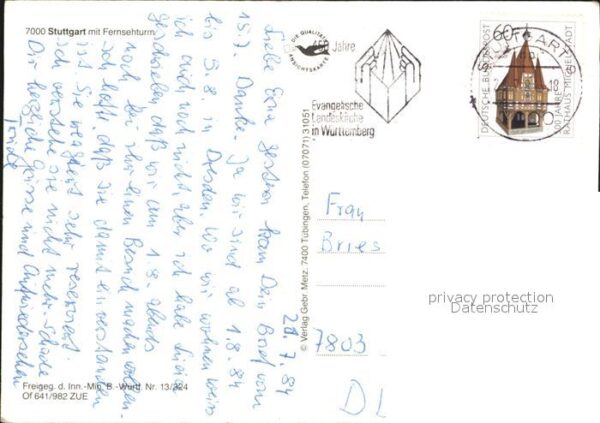 7000 Stuttgart mit Fernsehturm
20.7.84
Liebe Eva, gestern kam Dein Brief vom
15.7. Danke. Ja wir sind ab 1.8.84
bis 3.8. in Dresden. Wo wir wohnen weiss
ich auch noch nicht aber ich habe
geschrieben, daß wir am 1.8. abends
noch bei einen Besuch machen wollen.
Ich hoffe, daß Sie damit einverstanden
ist. Sie reagiert sehr reserviert.
Ich verstehe sie nicht mehr. Schade
Dir herzliche Grüsse und Aufwiedersehen
Freigeg. d. Inn.-Min. B.-Württ. Nr. 13/324
Of 641/982 ZUE
© Verlag Gebr. Metz, 7400 Tübingen, Telefon (07071) 31051
DIE QUALITÄTS
ANSICHTSKARTE
450 Jahre
Evangelische
Landeskirche
in Württemberg
STUTTGART
18
60
DEUTSCHE BUNDESPOST
500 JAHRE
RATHAUS MICHELSTADT
Frau
Bries
7803
privacy protection
Datenschutz